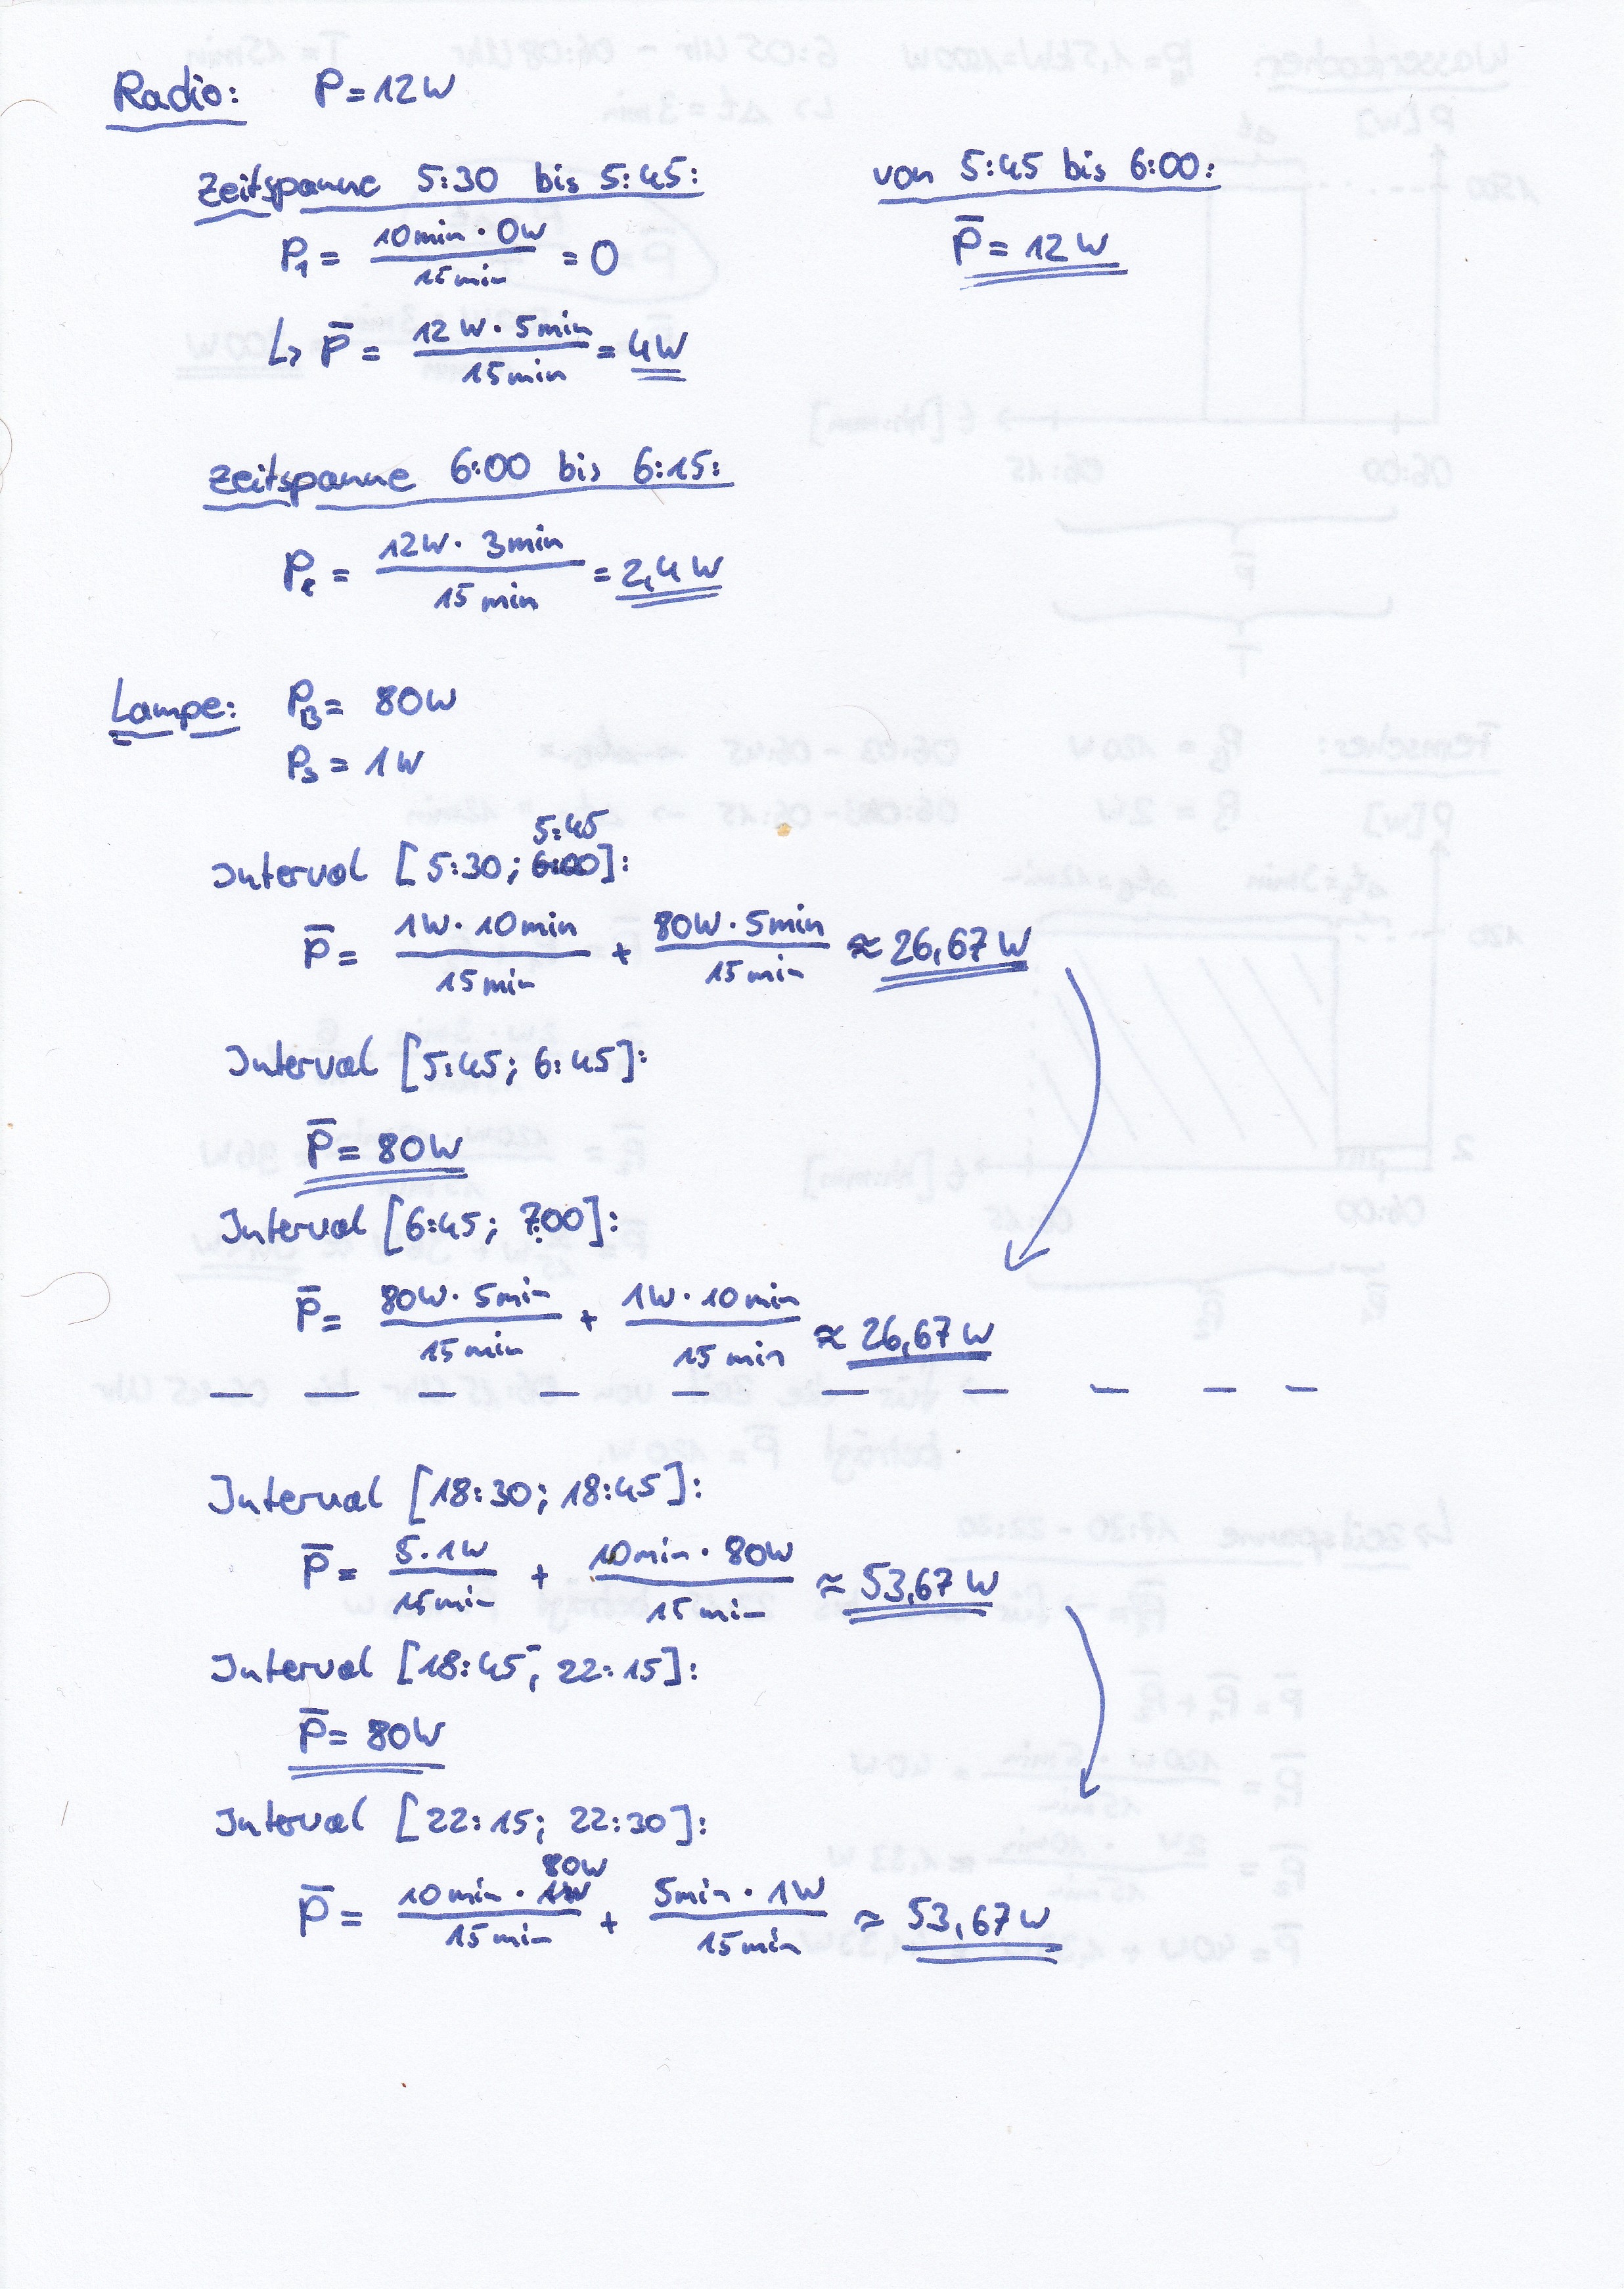 Radio: P = 12W
Zeitspanne 5:30 bis 5:45:
P₁ = (10min · 0W) / 15min = 0
↳ P̅ = (12W · 5min) / 15min = 4W
von 5:45 bis 6:00:
P̅ = 12W
Zeitspanne 6:00 bis 6:15:
P₂ = (12W · 3min) / 15min = 2,4W
Lampe: P_B = 80W
P_S = 1W
5:45
Interval [5:30; 6:00]:
P̅ = (1W · 10min) / 15min + (80W · 5min) / 15min ≈ 26,67W
Interval [5:45; 6:45]:
P̅ = 80W
Interval [6:45; 7:00]:
P̅ = (80W · 5min) / 15min + (1W · 10min) / 15min ≈ 26,67W
Interval [18:30; 18:45]:
P̅ = (5 · 1W) / 15min + (10min · 80W) / 15min ≈ 53,67W
Interval [18:45; 22:15]:
P̅ = 80W
Interval [22:15; 22:30]:
P̅ = (10min · 80W) / 15min + (5min · 1W) / 15min ≈ 53,67W